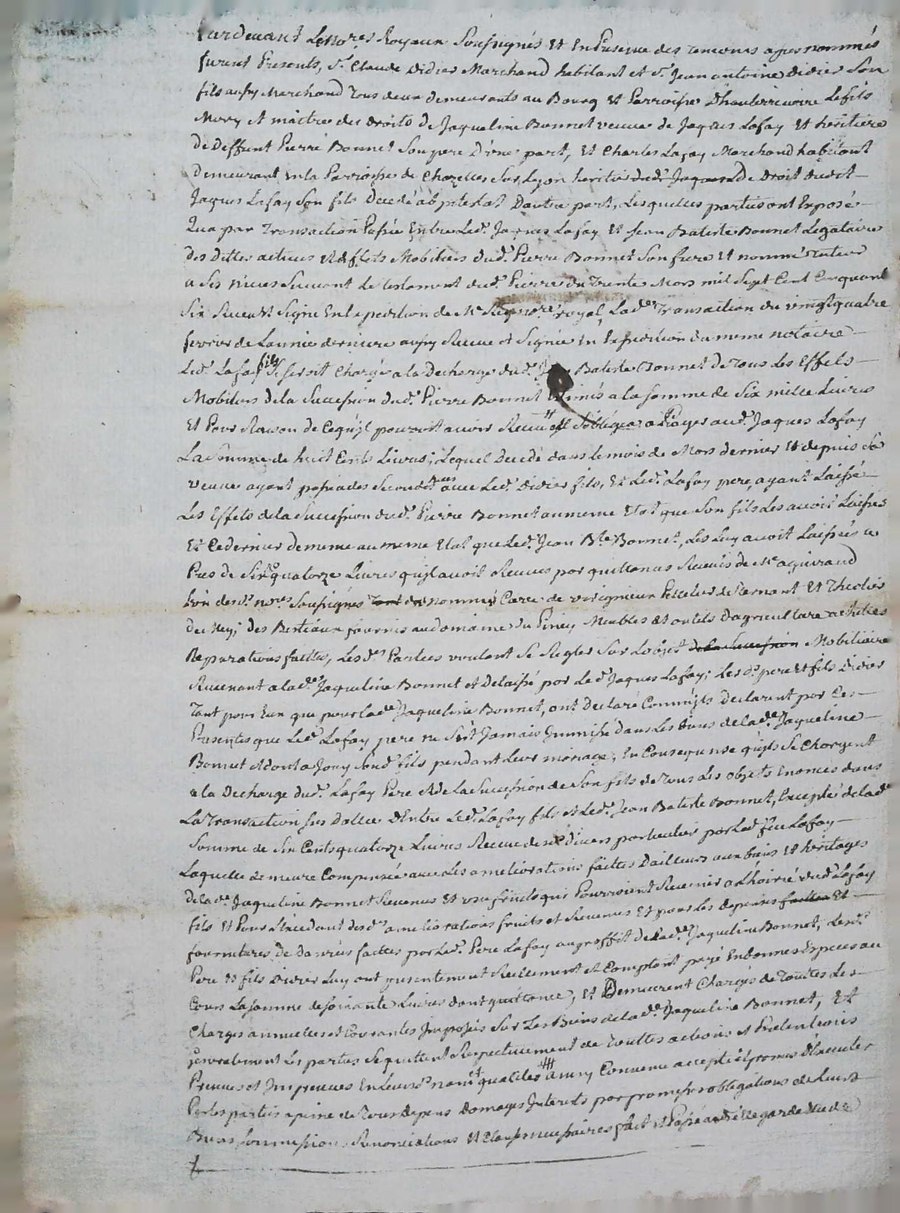 Pardevant Les no.res Royaux Soussignés Et En Presence des temoins apres nommés
furent Presents, S.r Claude Didier Marchand habitant et S.r Jean antoine Didier Son
fils aussy Marchand Tous deux demeurants au Bourg et Parroisse d'hauterivoire Le fils
Mary et maitre des droits de Jaqueline Bonnet veuve de Jaques Lafay Et heritiere
de Deffunt Pierre Bonnet Son pere D'une part, Et Charles Lafay Marchand habitant
demeurant en la Parroisse de Chazelles Sur Lyon heritier de droit dudit
Jaques Lafay Son fils Decedé abintestat Dautre part, Lesquelles parties ont Exposé
Que par Transaction Passée Entre Led. Jaques Lafay Et Jean Batiste Bonnet Legataire
des dittes actives et Effets Mobiliers dud. Pierre Bonnet Son frere et nommé Tuteur
a Ses nieces Suivant Le testement dud. Pierre du Trente Mars mil Sept Cent Cinquante
Six Receu et Signé En Expedition de M.e royal, Lad.e Transaction du vingt quatre
fevrier de Lannée derniere aussy Receue et Signée En Expedition du meme notaire
Led. Lafay fils Se Seroit Chargé a la Decharge dud. Batiste Bonnet de Tous Les Effets
Mobiliers de la Succession dud. Pierre Bonnet Estimés a la somme de Six mille Livres
Et Pour Raison de Ce qu'il pouvoit avoir Receu S'obligea a Payer aud. Jaques Lafay
La Somme de huit Cents Livres; Lequel Decedé dans le mois de Mars dernier Et depuis Sa
veuve ayant passé a des Secondes avec Led. Didier fils, Et Led. Lafay pere ayant Laissé
Les Effets de la Succession dud. Pierre Bonnet au meme Etat que Son fils Les avoit Laissés
Et Ce dernier de meme au meme Etat que Led. Jean B.te Bonnet, Les Luy avoit Laissés a
Pres de Six Cents quatorze Livres qu'il avoit Receues par quittances Receües de M.e
Lun des d. no.res Soussignés nommé Carre de et Thicolier
du Rey; des Bestiaux fournis au domaine du Piney Meubles Et outils d'agriculture achettés
Reparations faittes, Les d. Parties voulant Se Regler Sur L'objet de la Succession Mobiliaire
Revenant a lad.e Jaqueline Bonnet et Delaissé par Led. Jaques Lafay; Les d. pere et fils Didier
Tant pour Eux que pour lad.e Jaqueline Bonnet, ont Declaré Comme ils Declarent par Ces
Presentes que Led. Lafay pere ne S'est Jamais Immissé dans Les biens de lad.e Jaqueline
Bonnet dont a Jouy Sond. fils pendant Leur menage; En Consequense qu'ils Se Chargent
a la Decharge dud. Lafay Pere Et de la Succession de Son fils de Tous Les objets Enoncés dans
La Transaction Sus Dattée d'Entre Led. Lafay fils et Led. Jean Batiste Bonnet, Excepté de lad.e
Somme de Six Cents quatorze Livres Receue de divers particuliers par Led. feu Lafay
Laquelle demeure Compensée avec Les ameliorations faittes D'ailleurs aux biens et heritages
de lad.e Jaqueline Bonnet Revenus Et usufruits qui Pourroient Revenir a L'hoirie dud. Lafay
fils Et Pour L'Excedant desd. ameliorations fruits et Revenus Et pour Les depenses faittes Et
fournitures de danrées faittes par Led. Pere Lafay au proffit de lad.e Jaqueline Bonnet, Lesd.
Pere et fils Didier Luy ont presentement Reellement et Comptant payé En bonnes Especes au
Cours La somme de Soixante Livres dont quittance, Et Demeurent Chargés de Toutes Les
Charges annuelles et Courantes Imposées Sur Les Biens de lad.e Jaqueline Bonnet, Et
generalement Les parties Se quittent Respectivement de Touttes actions et Pretentions
Preveues et Impreveues En Leurs noms qualités Ainsy Convenu accepté et promis d'Executer
Par les parties a peine de Tous depens domages Interets par promesses obligations de Leurs
Biens Soumissions, Renonciations Et Clauses necessaires fait et Passé